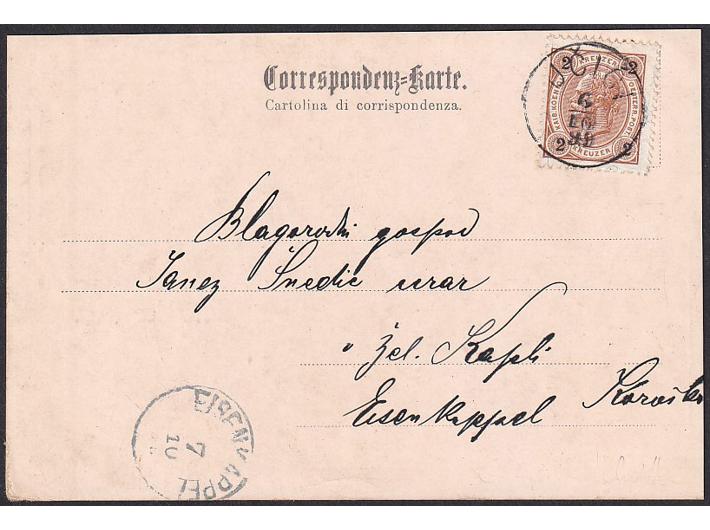 Correspondenz=Karte.
Cartolina di corrispondenza.
2 KREUZER 2
2 KREUZER 2
6
10
98
Blagorodni gospod
Janez Šnedic urar
v Žel. Kapli
Eisenkappel Koroško
EISENKAPPEL
7
10